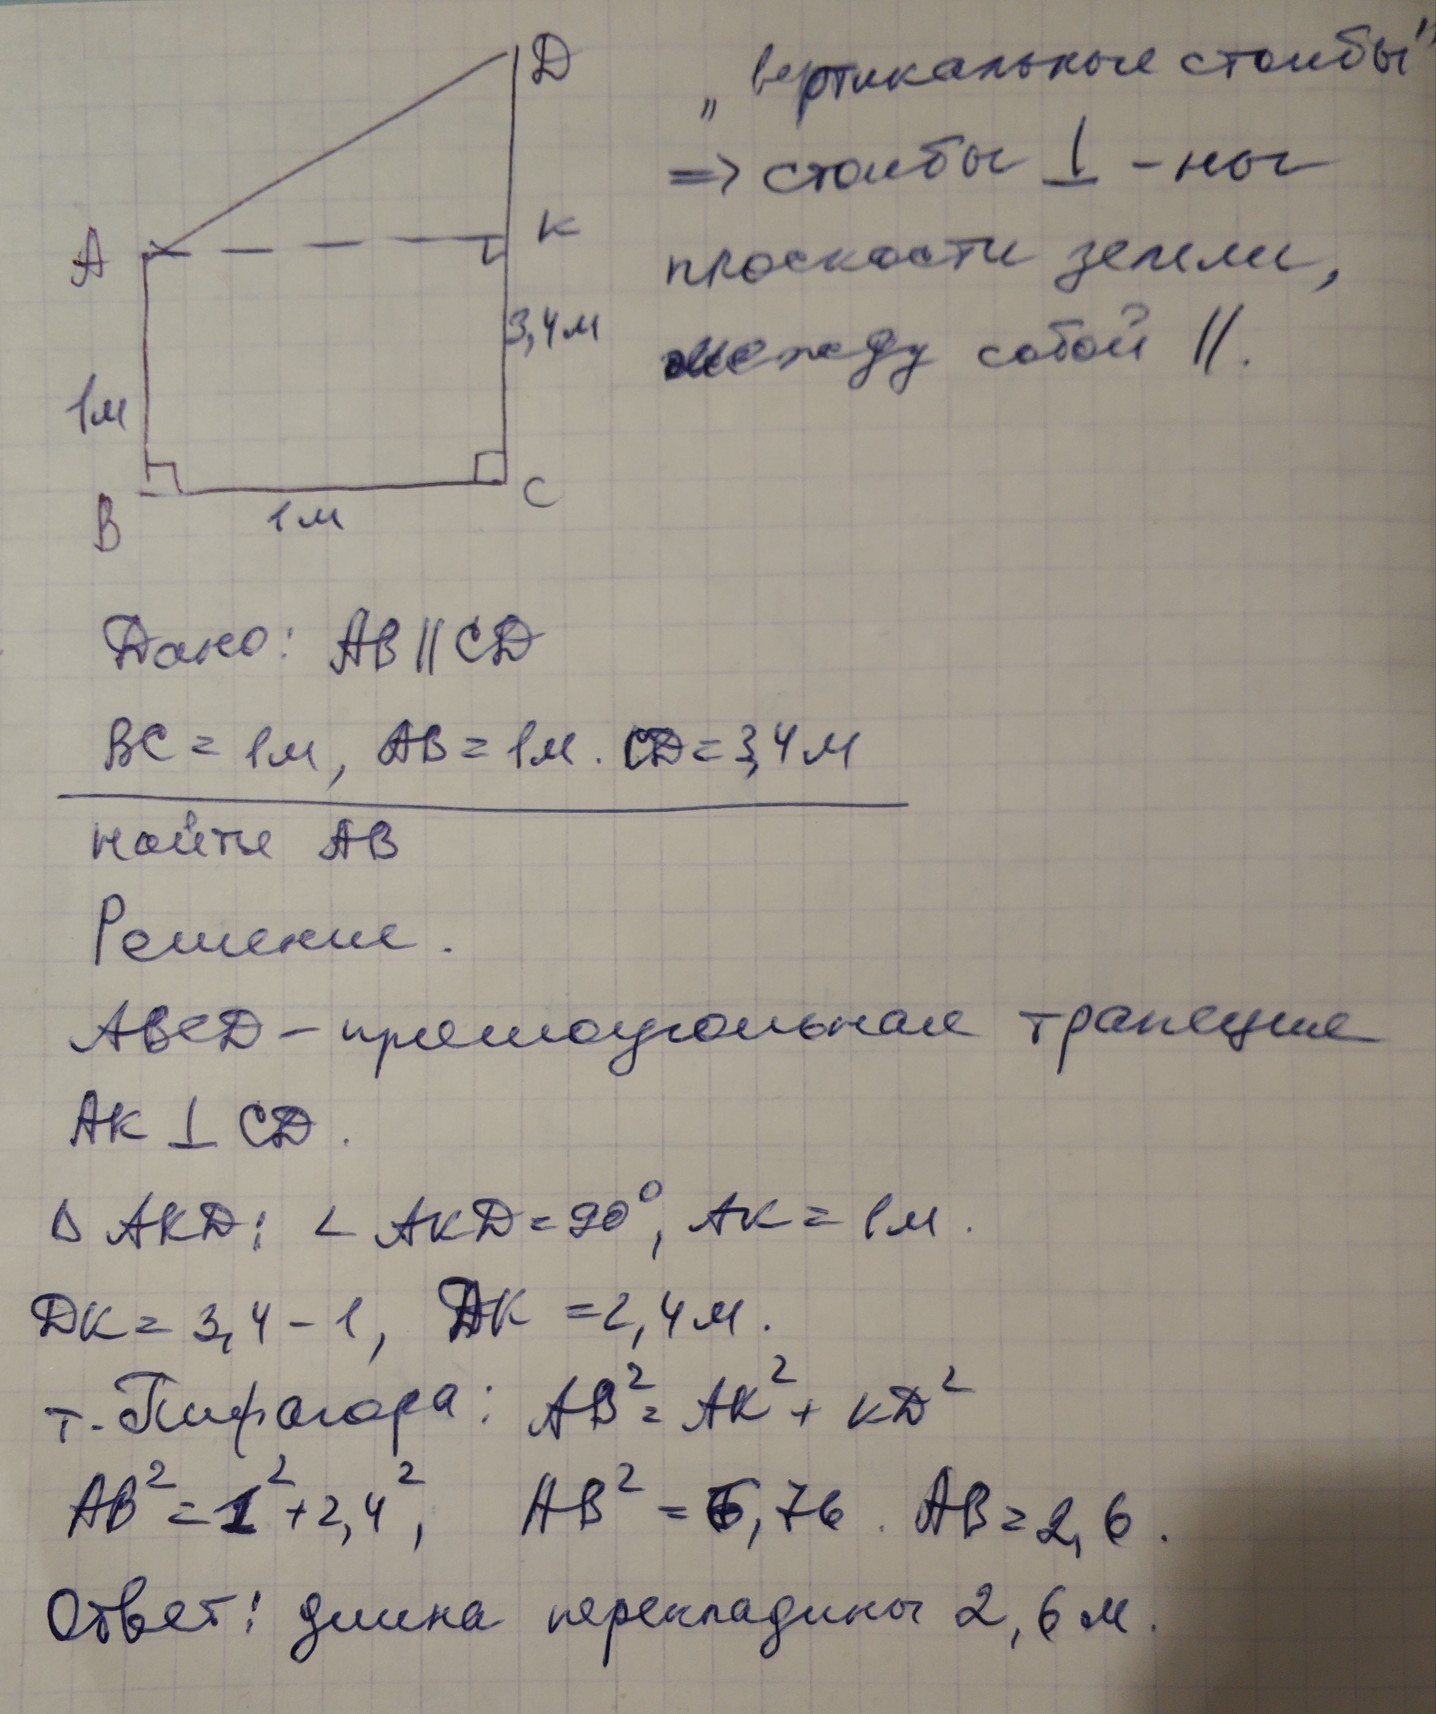 Д
„вертикальные столбы"
=> столбы ⊥ -ны
K
A
плоскости земли,
3,4м
между собой ||.
1м
B
1м
C
Дано: AB||CД
BC = 1м, AB = 1м. CД = 3,4м
найти AB
Решение.
ABCД - прямоугольная трапеция
AK ⊥ CД.
Δ AKД: ∠ AKД = 90°, AK = 1м.
ДK = 3,4 - 1, ДK = 2,4м.
т. Пифагора: AB² = AK² + KД²
AB² = 1² + 2,4², AB² = 6,76. AB = 2,6.
Ответ: длина перекладины 2,6м.